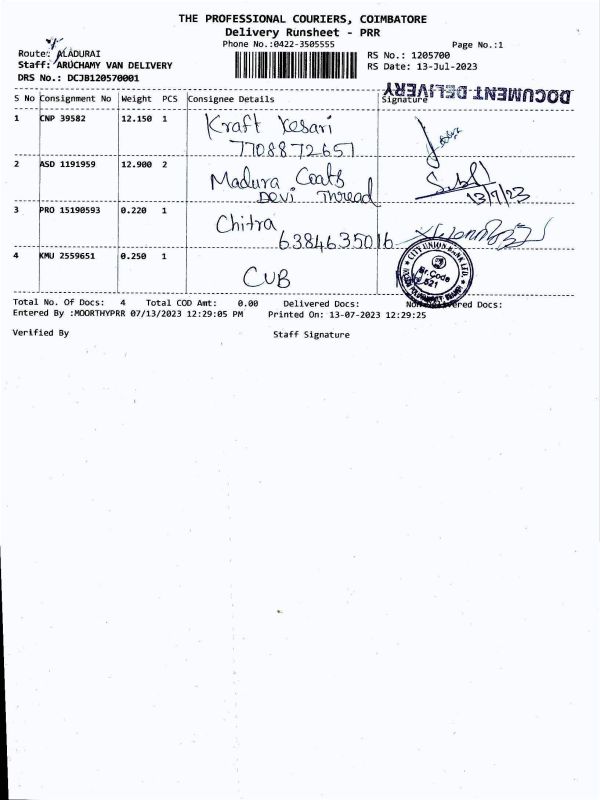 THE PROFESSIONAL COURIERS, COIMBATORE
Delivery Runsheet - PRR
Phone No.:0422-3505555 Page No.:1
Route: ALADURAI RS No.: 1205700
Staff: ARUCHAMY VAN DELIVERY RS Date: 13-Jul-2023
DRS No.: DCJB120570001
DOCUMENT DELIVERY
S No Consignment No Weight PCS Consignee Details Signature
1 CNP 39582 12.150 1 Kraft Kesari
7708872651
2 ASD 1191959 12.900 2 Madura Coats
Devi Thread 13/7/23
3 PRO 15190593 0.220 1 Chitra
6384635016
4 KMU 2559651 0.250 1 CUB
CITY UNION BANK LTD.
Br.Code
521
Total No. Of Docs: 4 Total COD Amt: 0.00 Delivered Docs: Non-Delivered Docs:
Entered By :MOORTHYPRR 07/13/2023 12:29:05 PM Printed On: 13-07-2023 12:29:25
Verified By Staff Signature